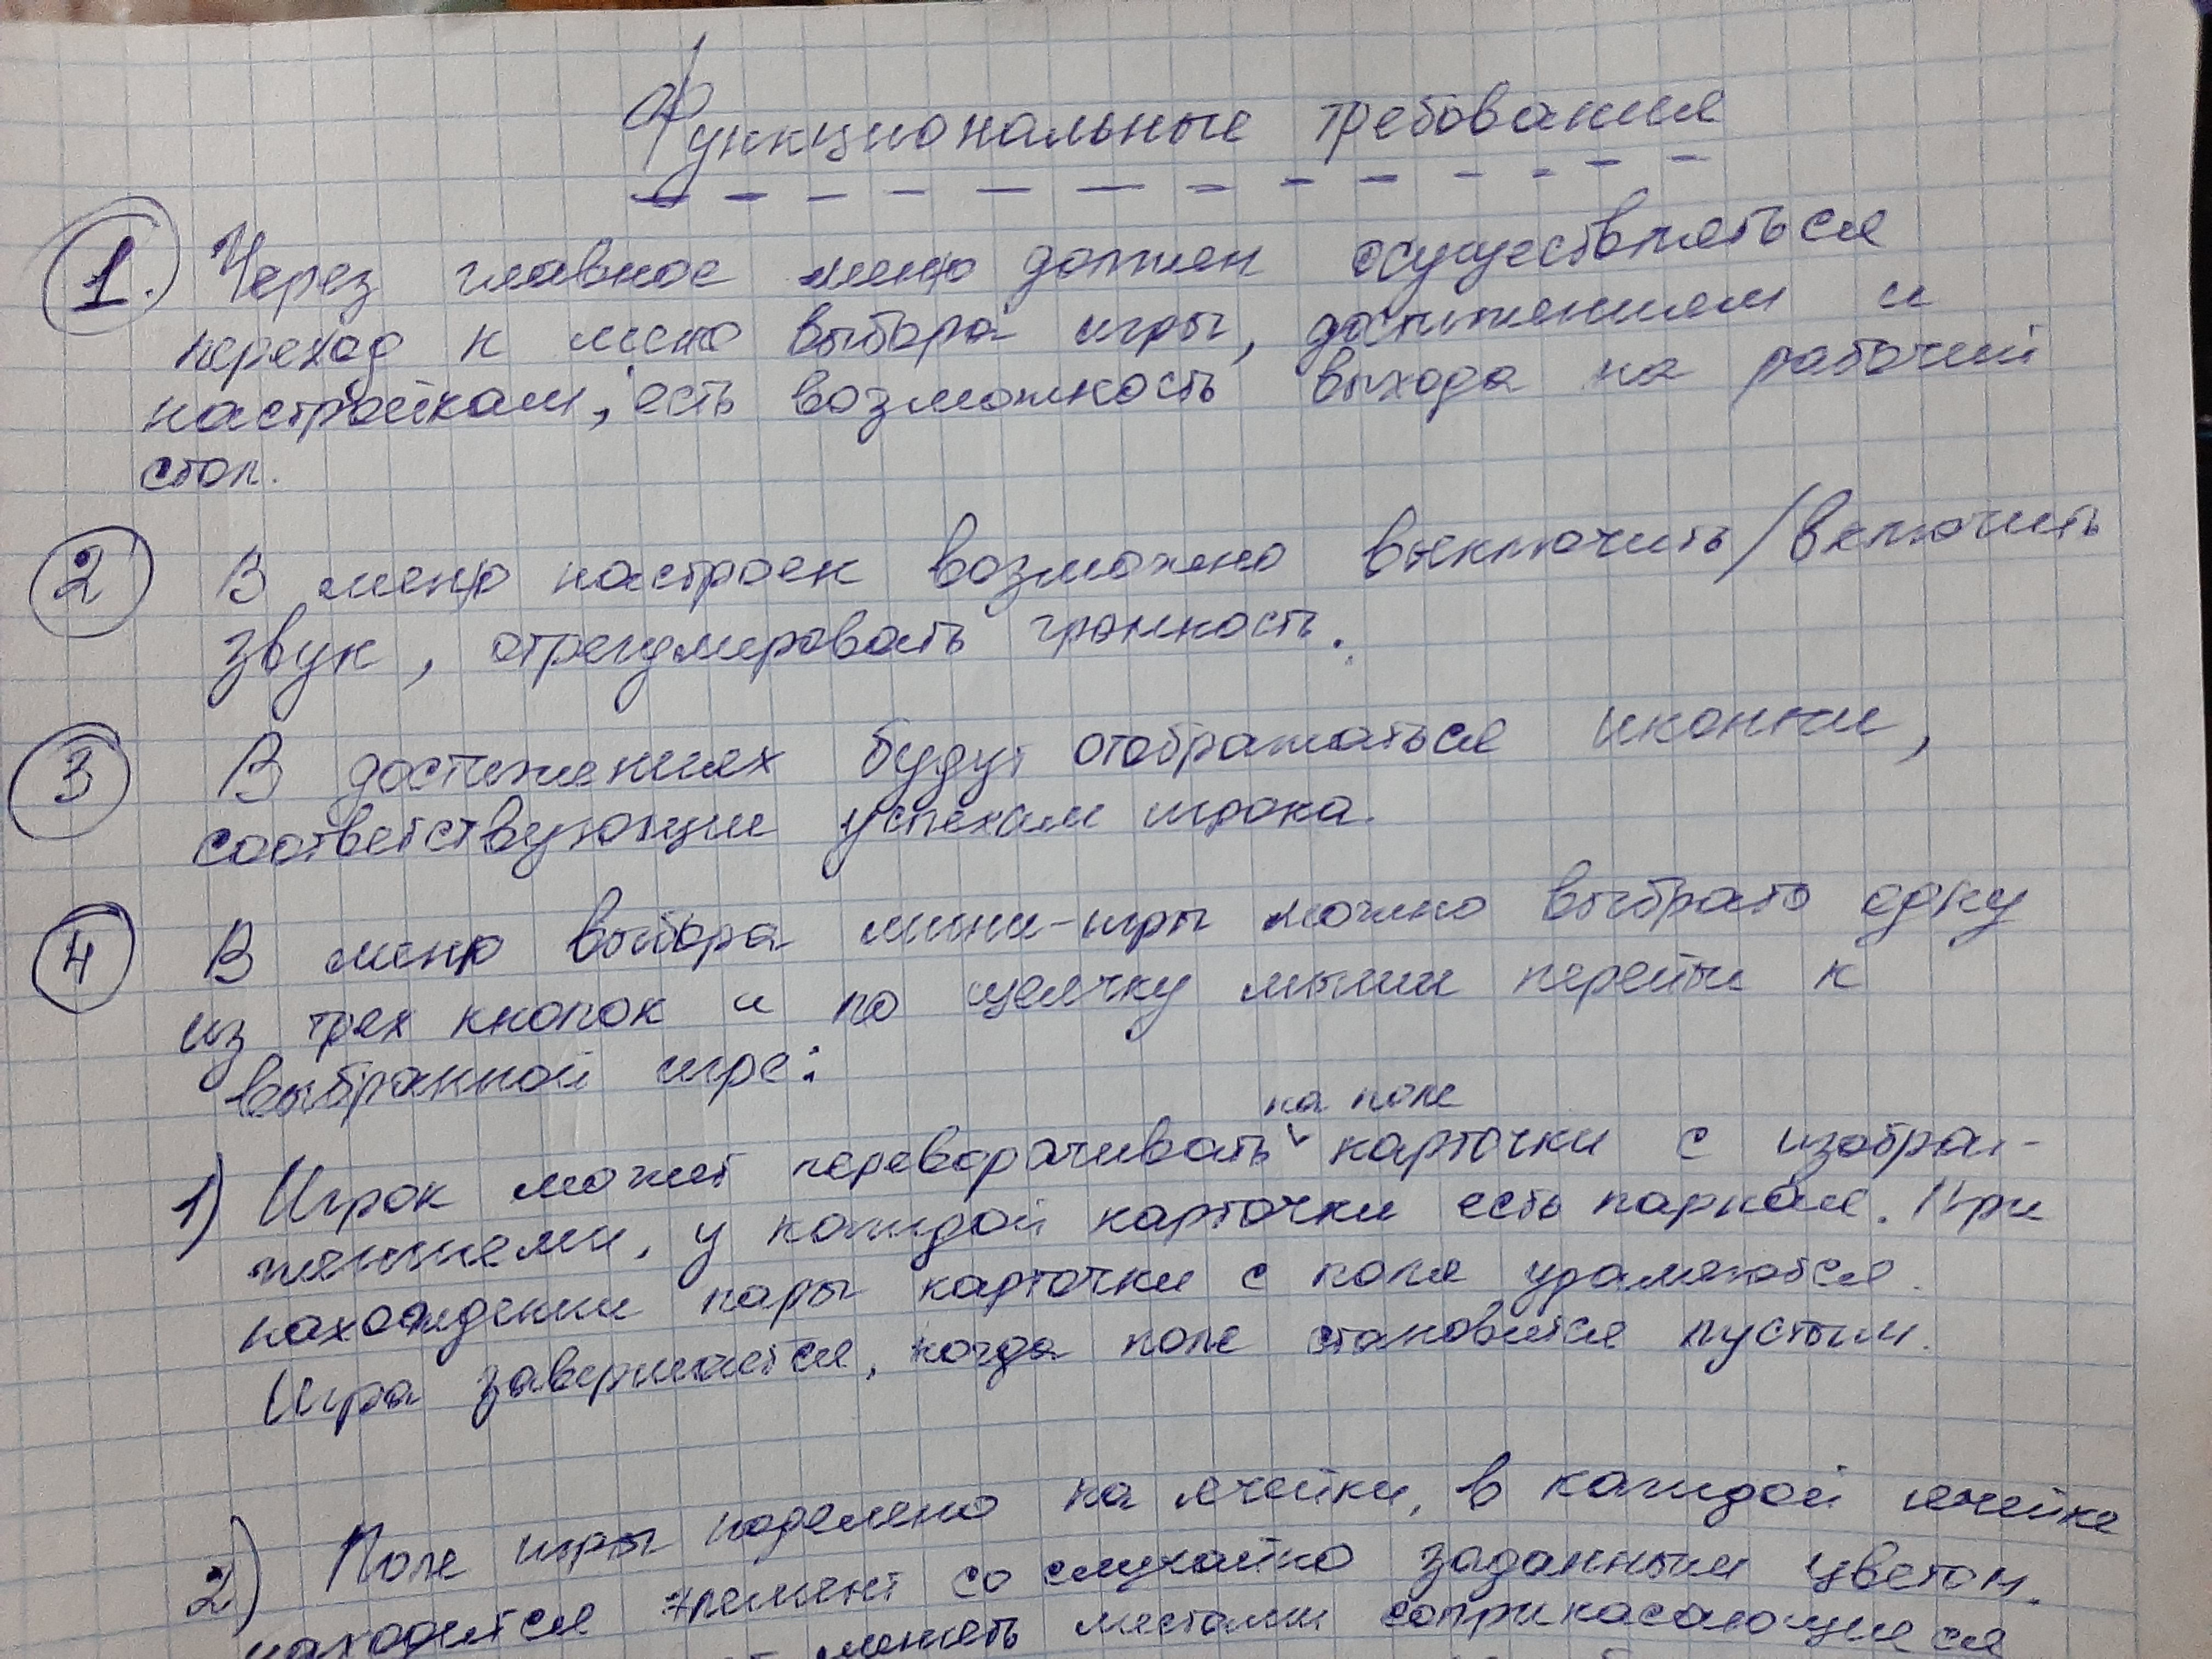 Функциональные требования
1. Через главное меню должен осуществляться
переход к меню выбора игры, достижениям и
настройкам, есть возможность выхода на рабочий
стол.
2 В меню настроек возможно выключить/включить
звук, отрегулировать громкость.
3 В достижениях будут отображаться иконки,
соответствующие успехам игрока.
4 В меню выбора мини-игры можно выбрать одну
из трех кнопок и по щелчку мыши перейти к
выбранной игре:
на поле
1) Игрок может переворачивать карточки с изобра-
жениями, у каждой карточки есть парная. При
нахождении пары карточки с поля удаляются.
Игра завершается, когда поле становится пустым.
2) Поле игры поделено на ячейки, в каждой ячейке
находится элемент со случайно заданным цветом.
менять местами соприкасающиеся